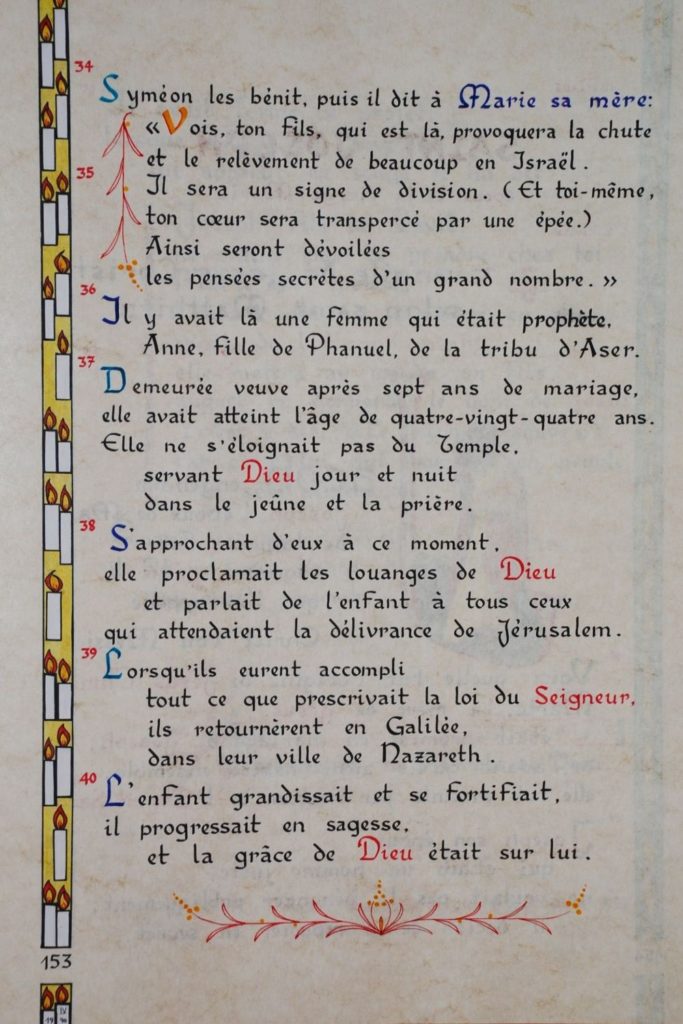 34
Syméon les bénit, puis il dit à Marie sa mère:
«Vois, ton fils, qui est là, provoquera la chute
et le relèvement de beaucoup en Israël.
35
Il sera un signe de division. (Et toi-même,
ton cœur sera transpercé par une épée.)
Ainsi seront dévoilées
les pensées secrètes d'un grand nombre.»
36
Il y avait là une femme qui était prophète,
Anne, fille de Phanuel, de la tribu d'Aser.
37
Demeurée veuve après sept ans de mariage,
elle avait atteint l'âge de quatre-vingt-quatre ans.
Elle ne s'éloignait pas du Temple,
servant Dieu jour et nuit
dans le jeûne et la prière.
38
S'approchant d'eux à ce moment,
elle proclamait les louanges de Dieu
et parlait de l'enfant à tous ceux
qui attendaient la délivrance de Jérusalem.
39
Lorsqu'ils eurent accompli
tout ce que prescrivait la loi du Seigneur,
ils retournèrent en Galilée,
dans leur ville de Nazareth.
40
L'enfant grandissait et se fortifiait,
il progressait en sagesse,
et la grâce de Dieu était sur lui.
153